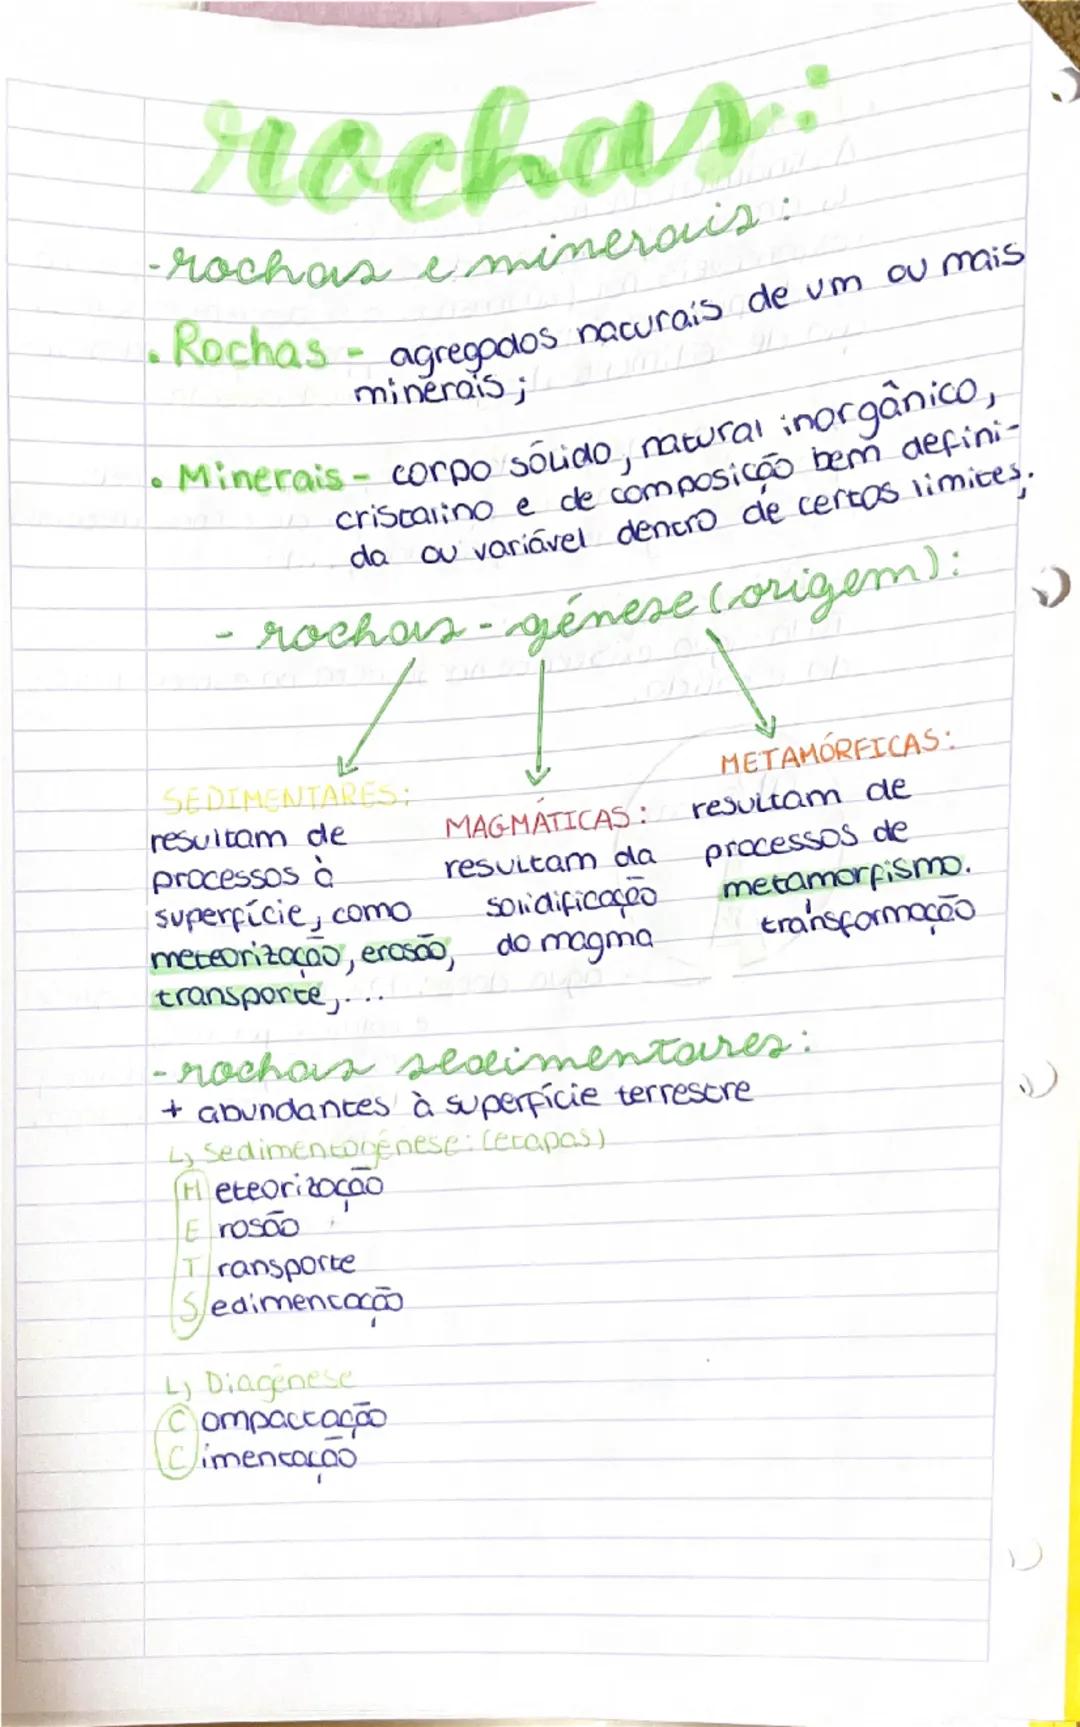 rochas:
-rochas e minerais:
• Rochas - agregados naturais de um ou mais
minerais;
• Minerais - corpo sólido, natural inorgânico,
cristalino e de composição bem defini-
da ou variável dentro de certos limites.
- rochas - génese (origem):
SEDIMENTARES:
resultam de
processos à
superfície, como
meteorização, erosão,
transporte,...
MAGMÁTICAS:
resultam da
solidificação
do magma
METAMÓRFICAS:
resultam de
processos de
metamorfismo.
transformação
-rochas sedimentares:
+ abundantes à superfície terrestre
↳ Sedimentogénese: (etapas)
Meteorização
Erosão
Transporte
Sedimentação
↳ Diagénese
Compactação
Cimentação